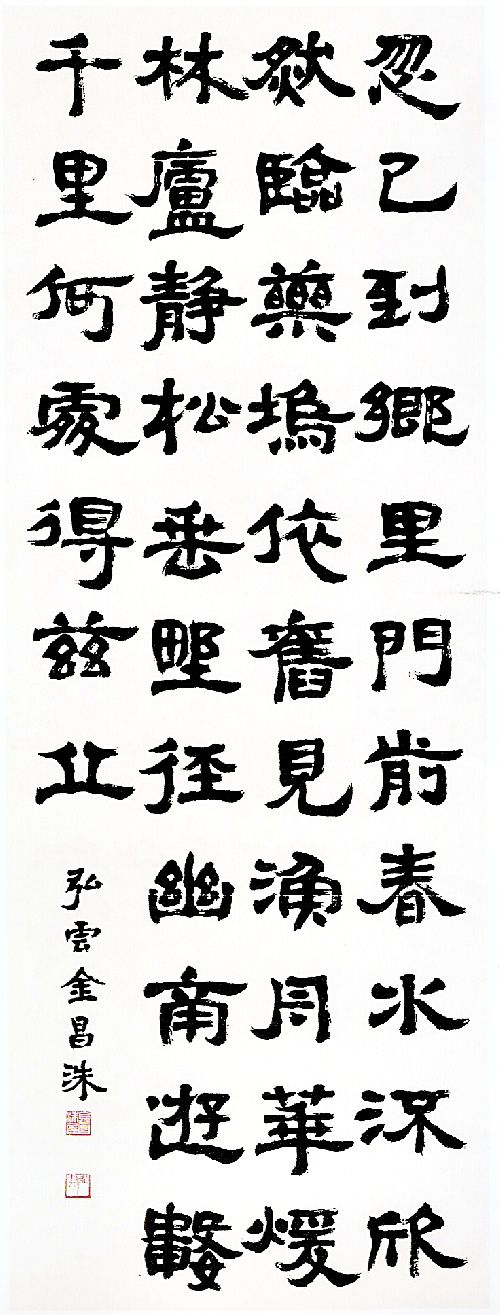 忽已到鄉里門前春水流欣
然臨藥塢依舊見漁舟華煖
林廬靜松垂野徑幽南遊數
千里何處得茲丘
弘雲金昌洙